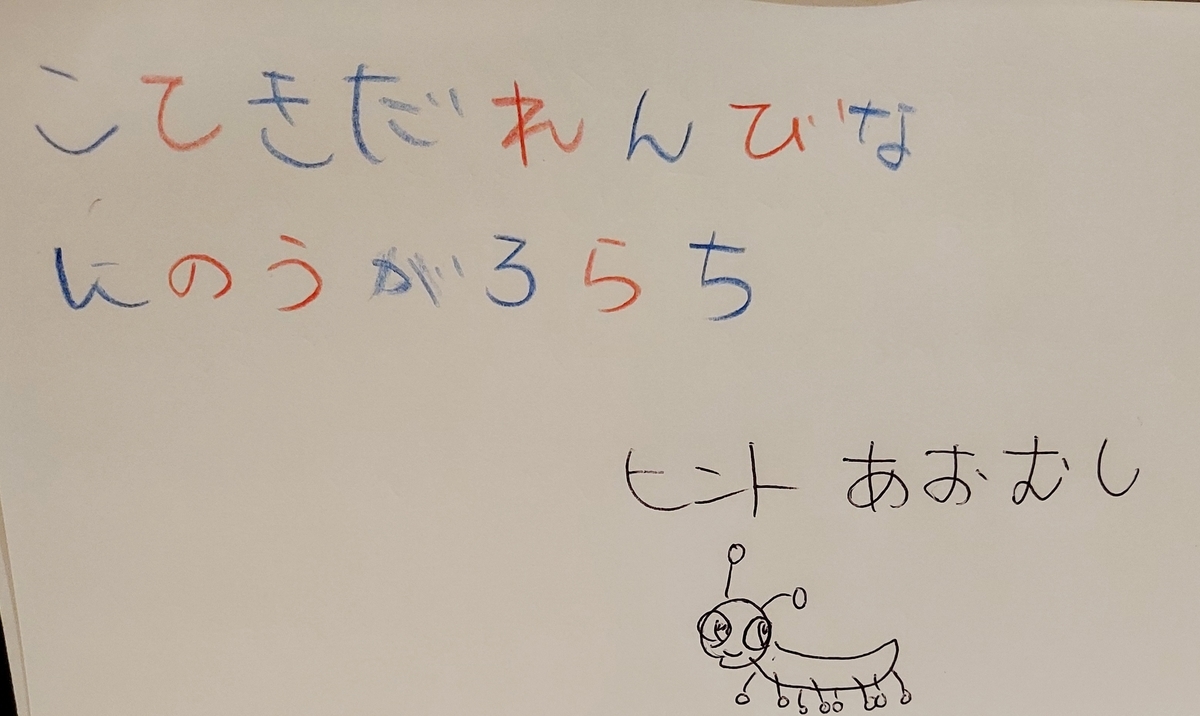 こてきだれんびな
にのうがろらち
ヒント あおむし